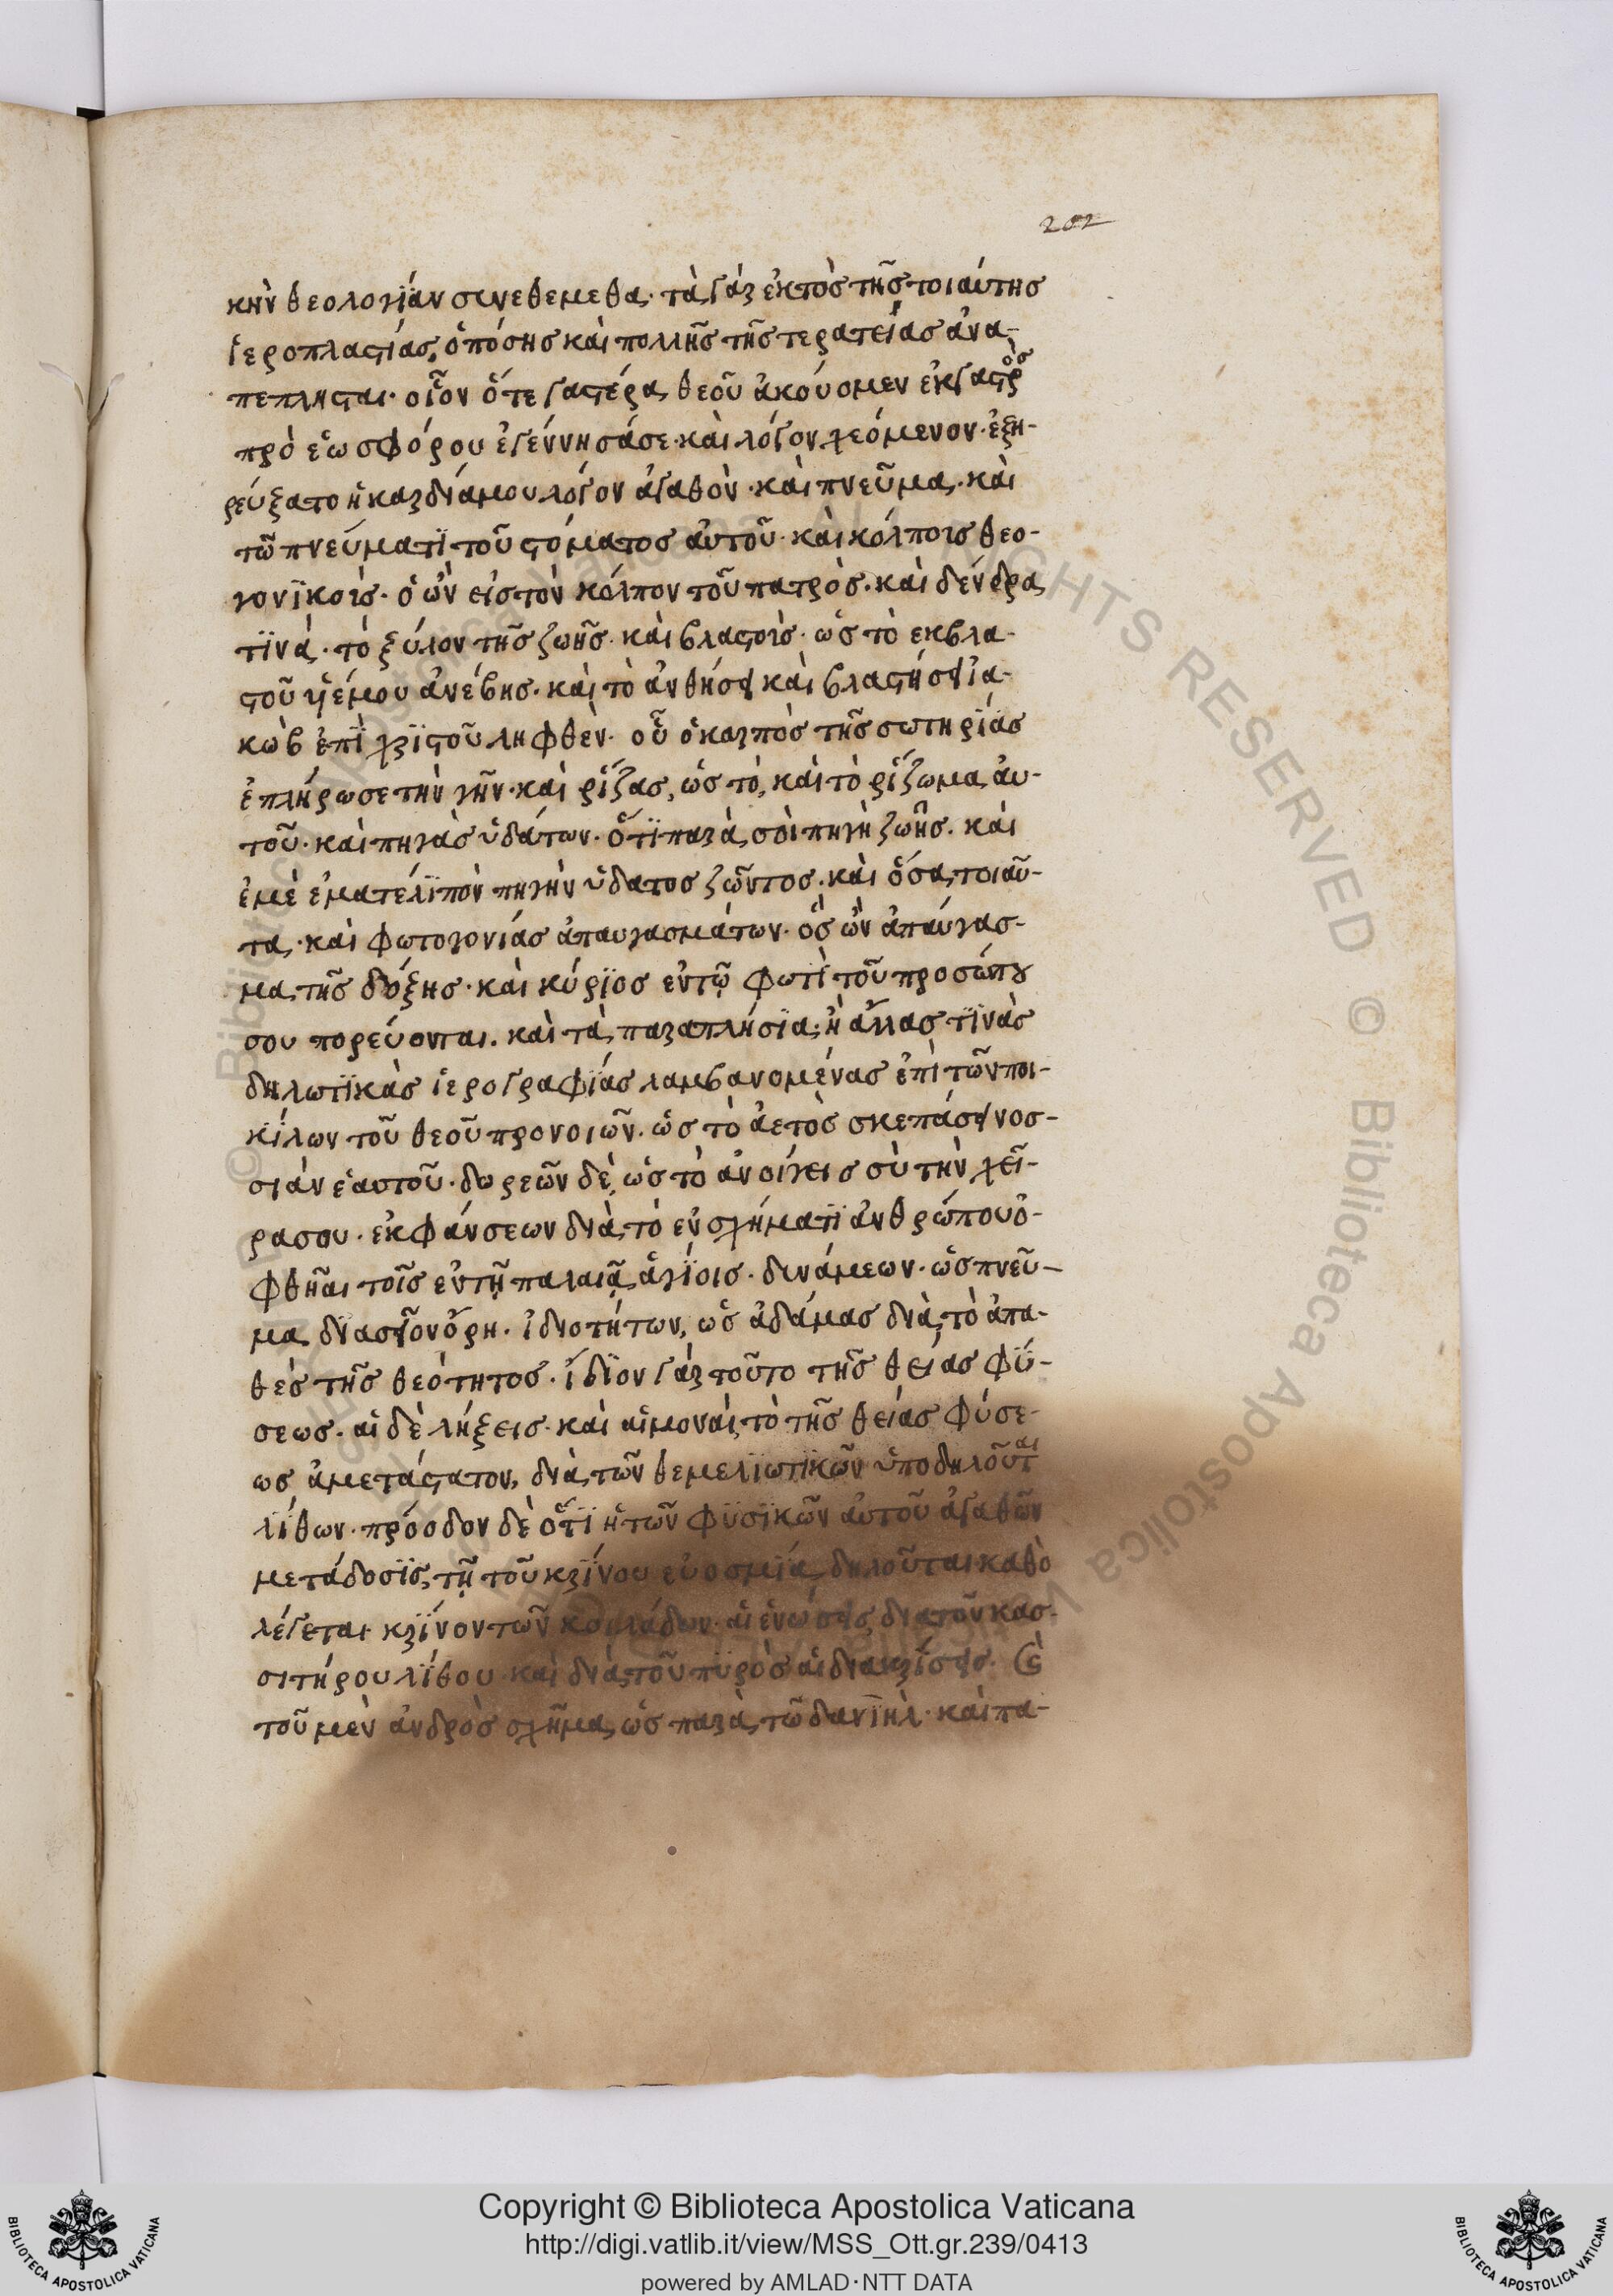 202
κὴν θεολογίαν συνεθέμεθα· τὰ γὰρ ἐκτὸς τῆς τοιαύτης
ἱεροπλαστίας, ὁπόσης καὶ πολλῆς τῆς τερατείας ἀνα-
πέπλησται· οἷον ὅτε γαστέρα θεοῦ ἀκούομεν ἐκ γαστρὸς
πρὸ ἑωσφόρου ἐγέννησά σε· καὶ λόγον χεόμενον· ἐξη-
ρεύξατο ἡ καρδία μου λόγον ἀγαθὸν· καὶ πνεῦμα· καὶ
τῶ πνεύματϊ τοῦ στόματος αὐτοῦ· καὶ κόλποις θεο-
γονϊκοῖς· ὁ ὢν εἰς τὸν κόλπον τοῦ πατρὸς· καὶ δένδρα
τϊνά· τὸ ξύλον τῆς ζωῆς· καὶ βλαστοῖς· ὡς τὸ ἐκ βλα-
στοῦ υἱέ μου ἀνέβης· καὶ τὸ ἀνθήσει καὶ βλαστήσει ἰα-
κὼβ ἐπῒ χρϊστοῦ ληφθὲν· οὗ ὁ καρπὸς τῆς σωτηρίας
ἐπλήρωσε τὴν γῆν· καὶ ῥίζας, ὡς τό, καὶ τὸ ῥίζωμα αὐ-
τοῦ· καὶ πηγὰς ὑδάτων· ὅτϊ παρὰ σοὶ πηγὴ ζωῆς· καὶ
ἐμὲ ἐγκατέλϊπον πηγὴν ὕδατος ζῶντος· καὶ ὅσα τοιαῦ-
τα· καὶ φωτογονίας ἀπαυγασμάτων· ὃς ὢν ἀπαύγασ-
μα τῆς δόξης· καὶ κύρϊος ἐν τῷ φωτὶ τοῦ προσώπου
σου πορεύονται. καὶ τὰ παραπλήσϊα· ἢ ἄλλας τϊνὰς
δηλωτϊκὰς ἱερογραφίας λαμβανομένας ἐπὶ τῶν ποι-
κίλων τοῦ θεοῦ προνοιῶν· ὡς τὸ ἀετὸς σκεπάσει νοσ-
σιὰν ἑαυτοῦ· δωρεῶν δὲ, ὡς τὸ ἀνοίγεις σὺ τὴν χεῖ-
ρα σου· ἐκφάνσεων διὰ τὸ ἐν σχήματϊ ἀνθρώπου ὀ-
φθῆναι τοῖς ἐν τῇ παλαιᾷ ἁγίοις· δυνάμεων· ὡς πνεῦ-
μα δϊασεῖον ὄρη· ἰδιοτήτων, ὡς ἀδάμας διὰ τὸ ἀπα-
θὲς τῆς θεότητος· ἴδϊον γὰρ τοῦτο τῆς θείας φύ-
σεως· αἱ δὲ λήξεις· καὶ αἱ μοναὶ, τὸ τῆς θείας φύσε-
ως ἀμετάστατον, διὰ τῶν θεμελϊωτϊκῶν ὑποδηλοῦται
λίθων· πρόοδον δὲ ὅτϊ ἡ τῶν φϋσϊκῶν αὐτοῦ ἀγαθῶν
μετάδοσϊς, τῇ τοῦ κρίνου εὐοσμία δηλοῦται καθὸ
λέγεται κρίνον τῶν κοιλάδων· αἱ ἑνώσεις διὰ τοῦ κασ-
σιτήρου λίθου καὶ διὰ τοῦ πυρὸς αἱ διακρίσεις· καὶ
τοῦ μὲν ἀνδρὸς σχῆμα, ὡς παρὰ τῶ δανϊὴλ· καὶ πα-
Copyright © Biblioteca Apostolica Vaticana
http://digi.vatlib.it/view/MSS_Ott.gr.239/0413
powered by AMLAD·NTT DATA